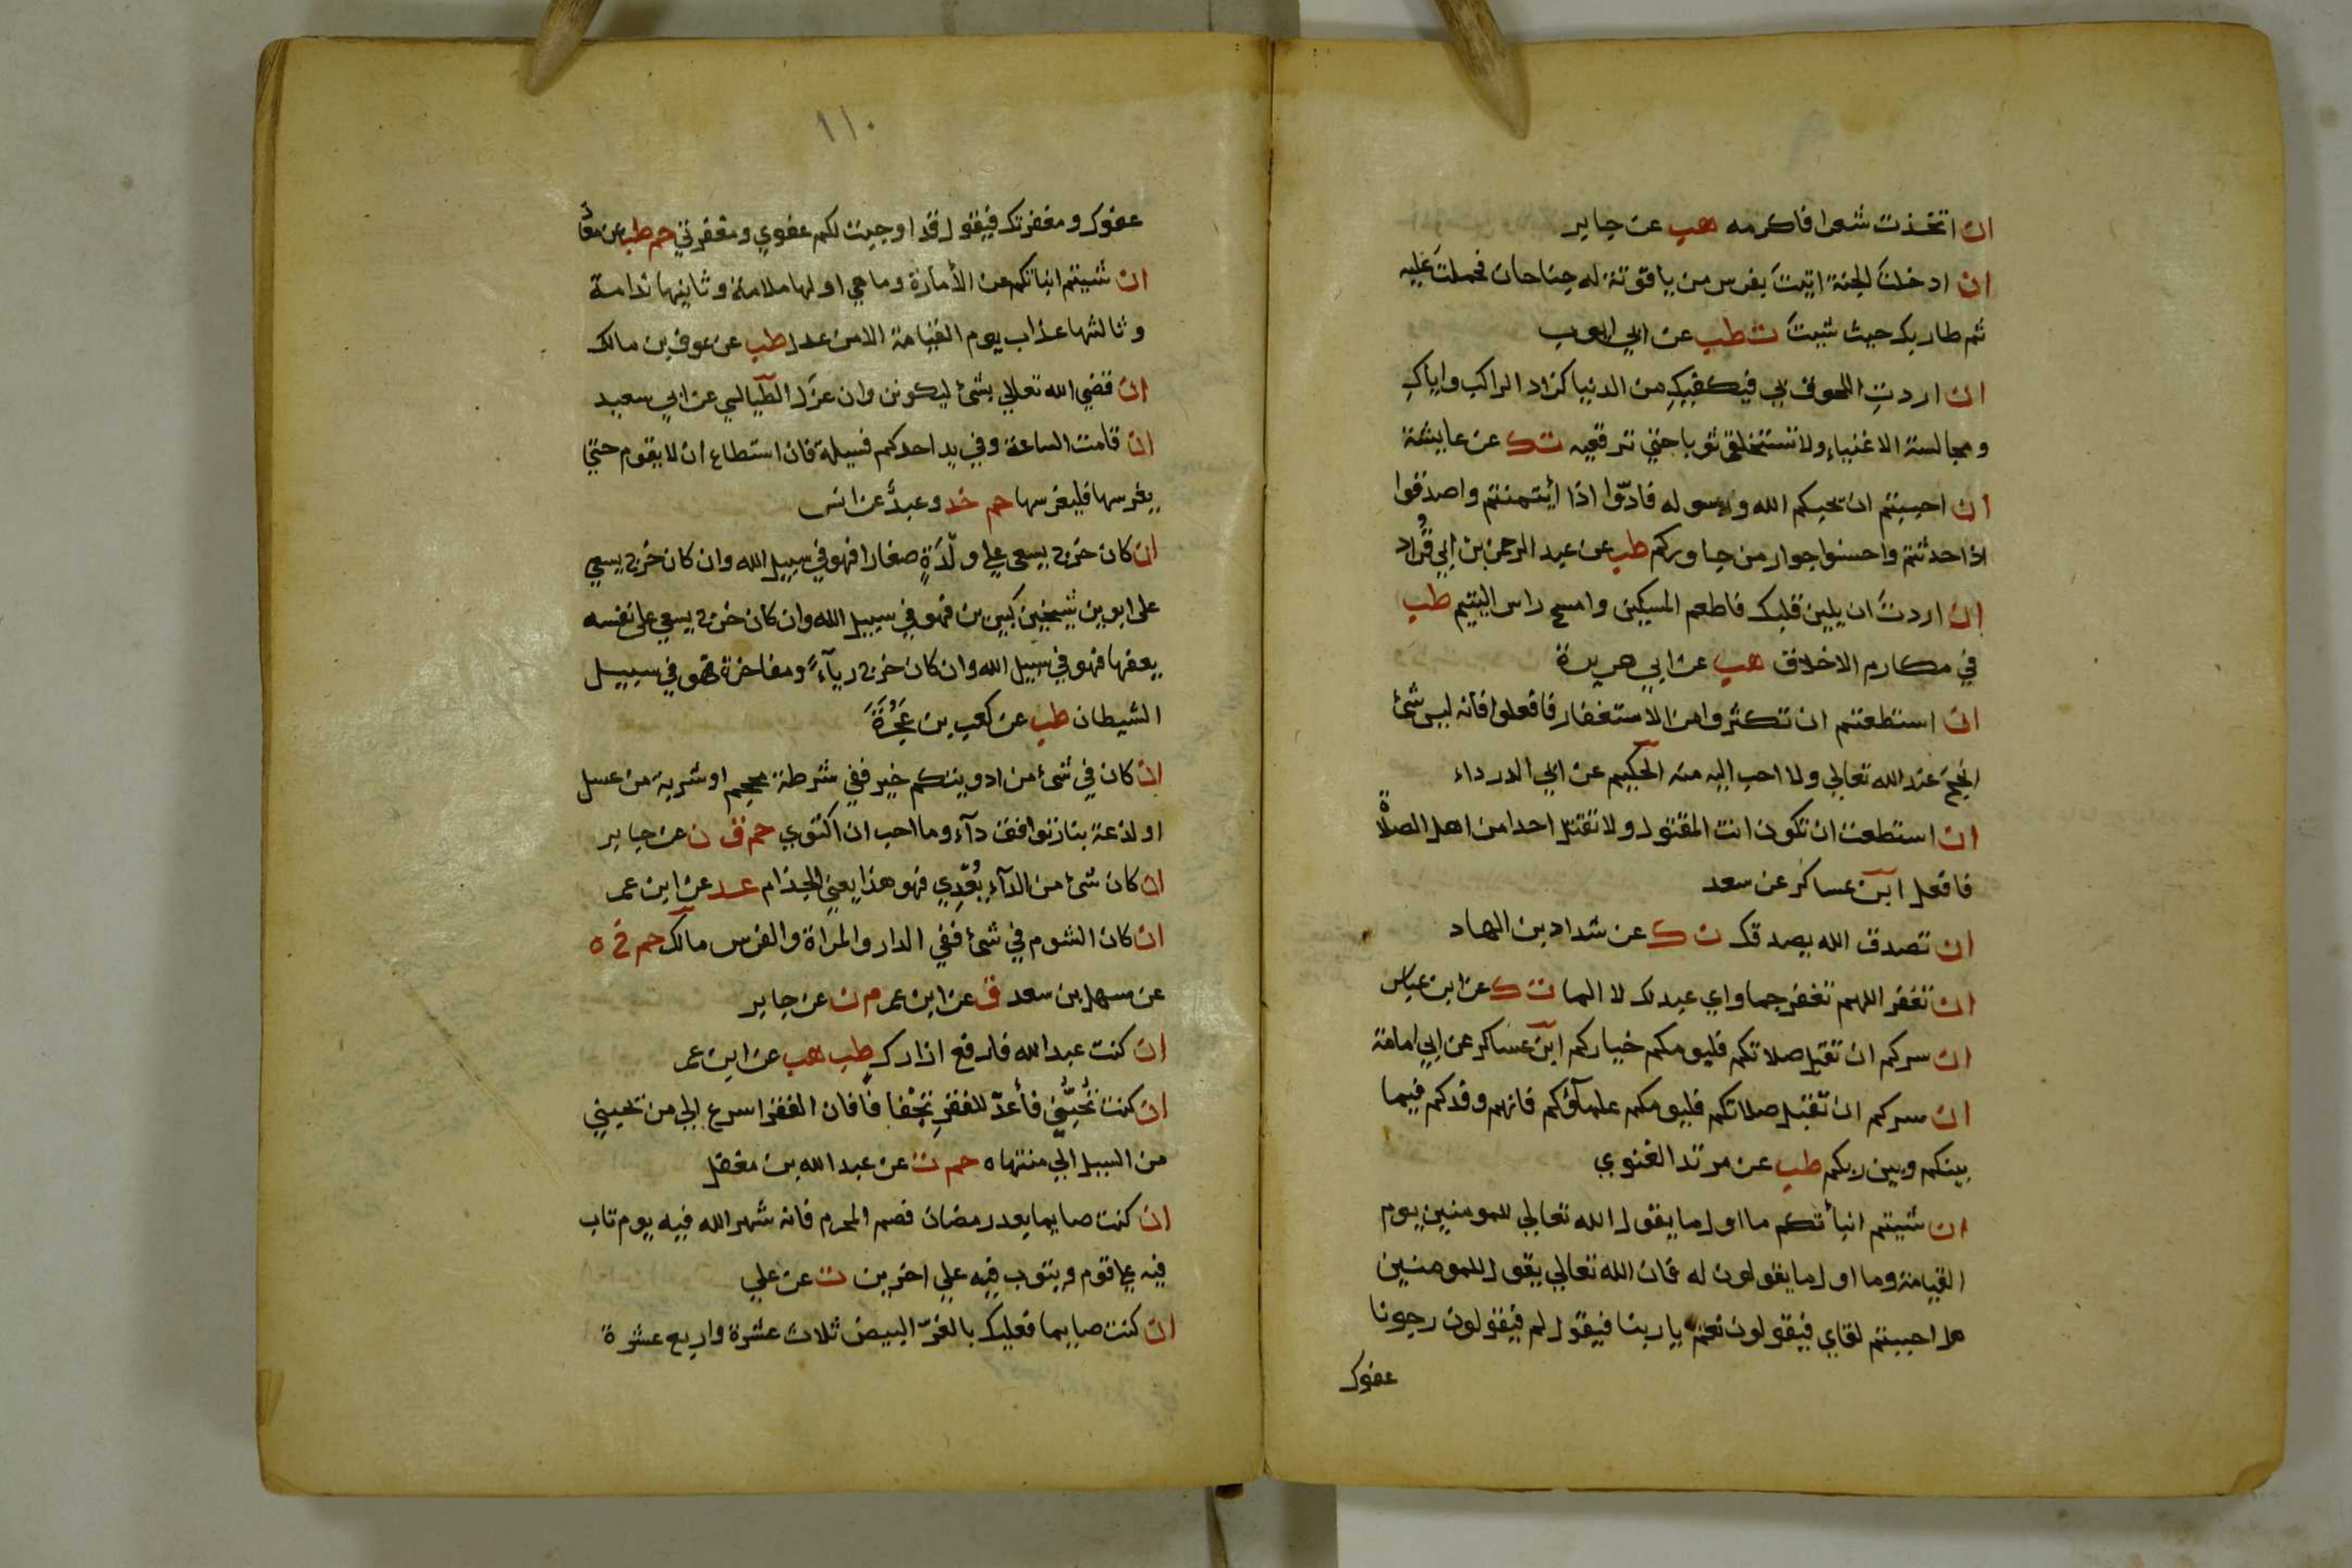 ان اتخذت شعرا فاكرمه هب عن جابر
ان ادخلتَ الجنة اتيتَ بفرس من ياقوتة له جناحان فحملتَ عليه
ثم طار بك حيث شيتَ ت طب عن ابي ايوب
ان اردتِ اللحوق بي فيكفيكِ من الدنيا كزاد الراكب واياكِ
ومجالسة الاغنياء ولا تستخلقي ثوبا حتي ترقعيه ت ك عن عايشة
ان احببتم ان يحبكم الله ورسوله فادّوا اذا ايتمنتم واصدقوا
اذا حدثتم واحسنوا جوار من جاوركم طب عن عبد الرحمن بن ابي قُراد
ان اردتَ ان يلين قلبك فاطعم المسكين وامسح راس اليتيم طب
في مكارم الاخلاق هب عن ابي هريرة
ان استطعتم ان تكثروا من الاستغفار فافعلوا فانه ليس شئ
انجحَ عند الله تعالي ولا احب اليه منه الحكيم عن ابي الدرداء
ان استطعت ان تكون انت المقتول ولا تقتل احدا من اهل الصلاة
فافعل ابن عساكر عن سعد
ان تصدق الله يصدقك ن ك عن شداد بن الهاد
ان تغفر اللهم تغفر جما واي عبد لك لا الما ت ك عن ابن عباس
ان سركم ان تقبل صلاتكم فليومكم خياركم ابن عساكر عن ابي امامة
ان سركم ان تقبل صلاتكم فليومكم علمآؤكم فانهم وفدكم فيما
بينكم وبين ربكم طب عن مرثد الغنوي
ان شيتم انبأتكم ما اول ما يقول الله تعالي للمومنين يوم
القيامة وما اول ما يقولون له فان الله تعالي يقول للمومنين
هل احببتم لقاي فيقولون نعم ياربنا فيقول لم فيقولون رجونا
عفوك
١١٠
عفوك ومغفرتك فيقول قد اوجبت لكم عفوي ومغفرتي حم طب عن معاذ
ان شيتم انباتكم عن الأمارة وما هي اولها ملامة وثانيها ندامة
وثالثها عذاب يوم القيامة الا من عدل طب عن عوف بن مالك
ان قضي الله تعالي بشئ ليكونن وان عزل الطيالسي عن ابي سعيد
ان قامت الساعة وفي يد احدكم فسيلة فان استطاع ان لا يقوم حتي
يغرسها فليغرسها حم خد وعبد عن انس
ان كان خرج يسعي علي ولْدَةٍ صغارا فهو في سبيل الله وان كان خرج يسعي
علي ابوين شيخين كبيرين فهو في سبيل الله وان كان خرج يسعي علي نفسه
يعفها فهو في سبيل الله وان كان خرج ريآءً ومفاخرة فهو في سبيل
الشيطان طب عن كعب بن عجرة
ان كان في شئ من ادويتكم خير ففي شرطة محجم او شربة من عسل
او لذعة بنار توافق دآء وما احب ان اكتوي حم ق ن عن جابر
ان كان شئ من الدآء يُعْدِي فهو هذا يعني الجذام عد عن ابن عمر
ان كان الشوم في شئ ففي الدار والمراة والفرس مالك حم خ ه
عن سهل بن سعد ق عن ابن عمر م ن عن جابر
ان كنت عبد الله فارفع ازارك طب هب عن ابن عمر
ان كنت تُحِبُّني فأعدّ للفقرِ تجْفافًا فان الفقر اسرع الي من يحبني
من السيل الي منتهاه حم ت عن عبد الله بن مغفل
ان كنت صايما بعد رمضان فصم المحرم فانه شهر الله فيه يوم تاب
فيه علي قوم ويتوب فيه علي اخرين ت عن علي
ان كنت صايما فعليك بالغرّ البيض ثلاث عشرة واربع عشرة